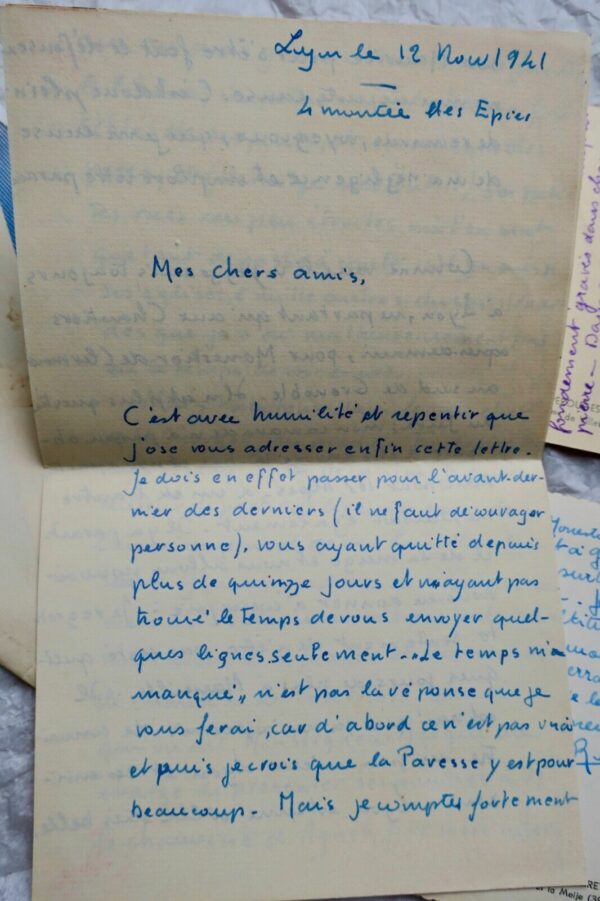 Lyon le 12 Nov 1941
4 montée des Epies
Mes chers amis,
C'est avec humilité et repentir que
j'ose vous adresser enfin cette lettre.
Je dois en effet passer pour l'avant-der-
nier des derniers (il ne faut décourager
personne), vous ayant quitté depuis
plus de quinze jours et n'ayant pas
trouvé le temps de vous envoyer quel-
ques lignes seulement. "Le temps m'a
manqué", n'est pas la réponse que je
vous ferai, car d'abord ce n'est pas vrai
et puis je crois que la Paresse y est pour
beaucoup. Mais je comptes fortement
gravés dans
pierre -
la Meije